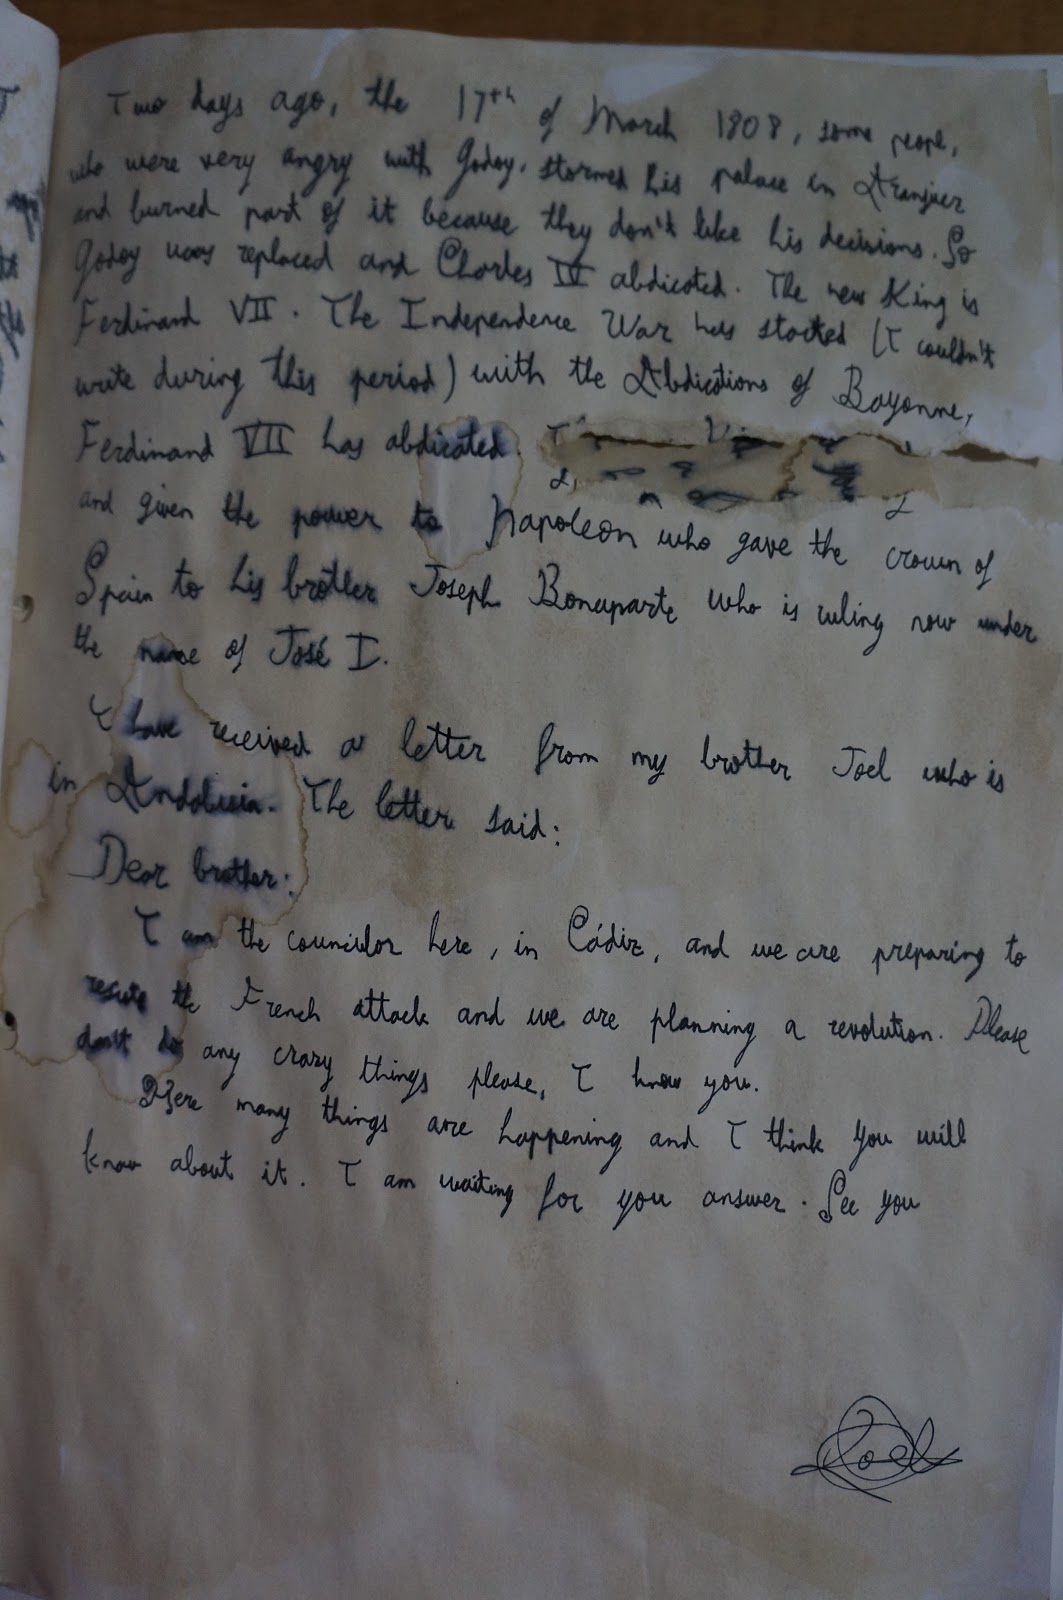 Two days ago, the 17th of March 1808, some people,
who were very angry with Godoy, stormed his palace in Aranjuez
and burned part of it because they don't like his decisions. So
Godoy was replaced and Charles IV abdicated. The new King is
Ferdinand VII. The Independence War has started (I couldn't
write during this period) with the Abdications of Bayonne,
Ferdinand VII has abdicated
and given the power to Napoleon who gave the crown of
Spain to his brother Joseph Bonaparte who is ruling now under
the name of José I.
I have received a letter from my brother Joel who is
in Andalusia. The letter said:
Dear brother:
I am the councilor here, in Cádiz, and we are preparing to
the French attack and we are planning a revolution. Please
don't do any crazy things please, I know you.
Here many things are happening and I think you will
know about it. I am waiting for you answer. See you
Joel